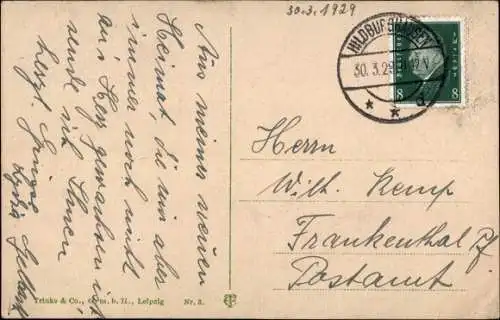 30.3.1929
HILDBURGHAUSEN
30.3.29
8 8
Aus meiner neuen
Heimat, die mir aber
immer noch nicht
ans Herz gewachsen ist
sende ich Ihnen
herzl. Grüsse
Lydia
Herrn
Wilh. Kemp
Frankenthal Pf
Postamt
Trinks & Co., G. m. b. H., Leipzig
Nr. 3.